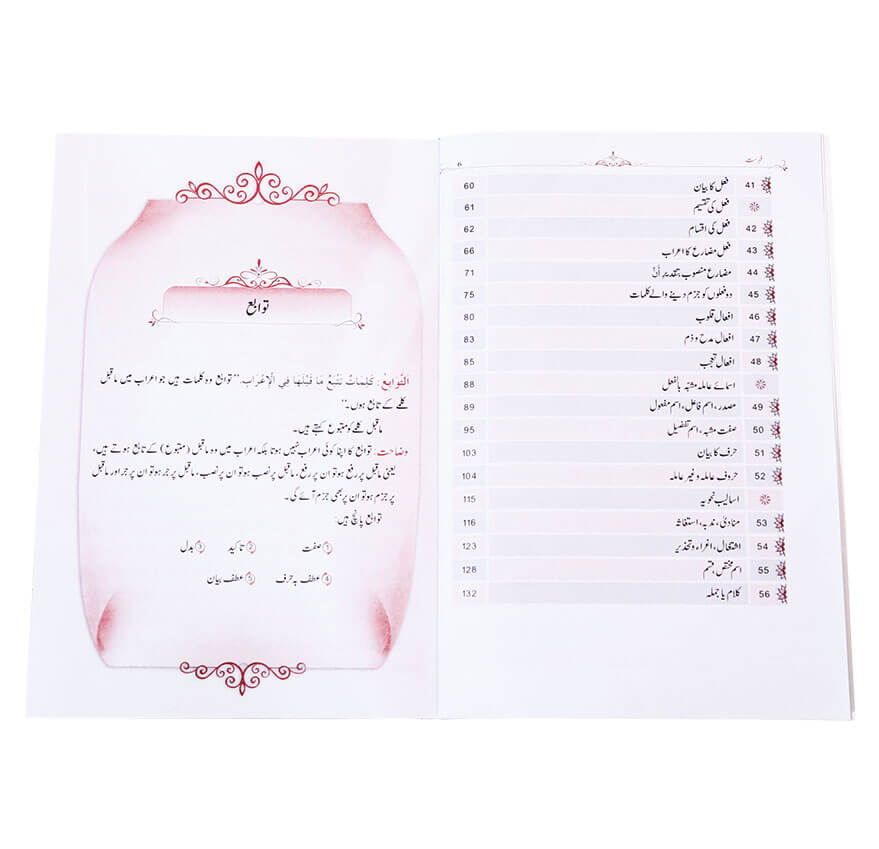 فہرست 6
41 فعل کا بیان 60
فعل کی تقسیم 61
42 فعل کی اقسام 62
43 فعل مضارع کا اعراب 66
44 مضارع منصوب بتقدیر أَنْ 71
45 دو فعلوں کو جزم دینے والے کلمات 75
46 افعال قلوب 80
47 افعال مدح و ذم 83
48 افعال تعجب 85
اسمائے عاملہ مشبّہ بالفعل 88
49 مصدر، اسم فاعل، اسم مفعول 89
50 صفت مشبہ، اسم تفضیل 95
51 حرف کا بیان 103
52 حروف عاملہ و غیر عاملہ 104
اسالیب نحویہ 115
53 منادیٰ، ندبہ، استغاثہ 116
54 اشتغال، اغراء و تحذیر 123
55 اسم مختص، قسم 128
56 کلام یا جملہ 132
توابع
التَّوَابِعُ: كَلِمَاتٌ تَتْبَعُ مَا قَبْلَهَا فِي الْإِعْرَابِ. ’’توابع وہ کلمات ہیں جو اعراب میں ماقبل
کلمے کے تابع ہوں۔‘‘
ماقبل کلمے کو متبوع کہتے ہیں۔
وضاحت: توابع کا اپنا کوئی اعراب نہیں ہوتا بلکہ اعراب میں وہ ماقبل (متبوع) کے تابع ہوتے ہیں،
یعنی ماقبل پر رفع ہو تو ان پر رفع، ماقبل پر نصب ہو تو ان پر نصب، ماقبل پر جر ہو تو ان پر جر اور ماقبل
پر جزم ہو تو ان پر بھی جزم آئے گی۔
توابع پانچ ہیں:
① صفت ② تاکید ③ بدل
④ عطف بہ حرف ⑤ عطف بیان